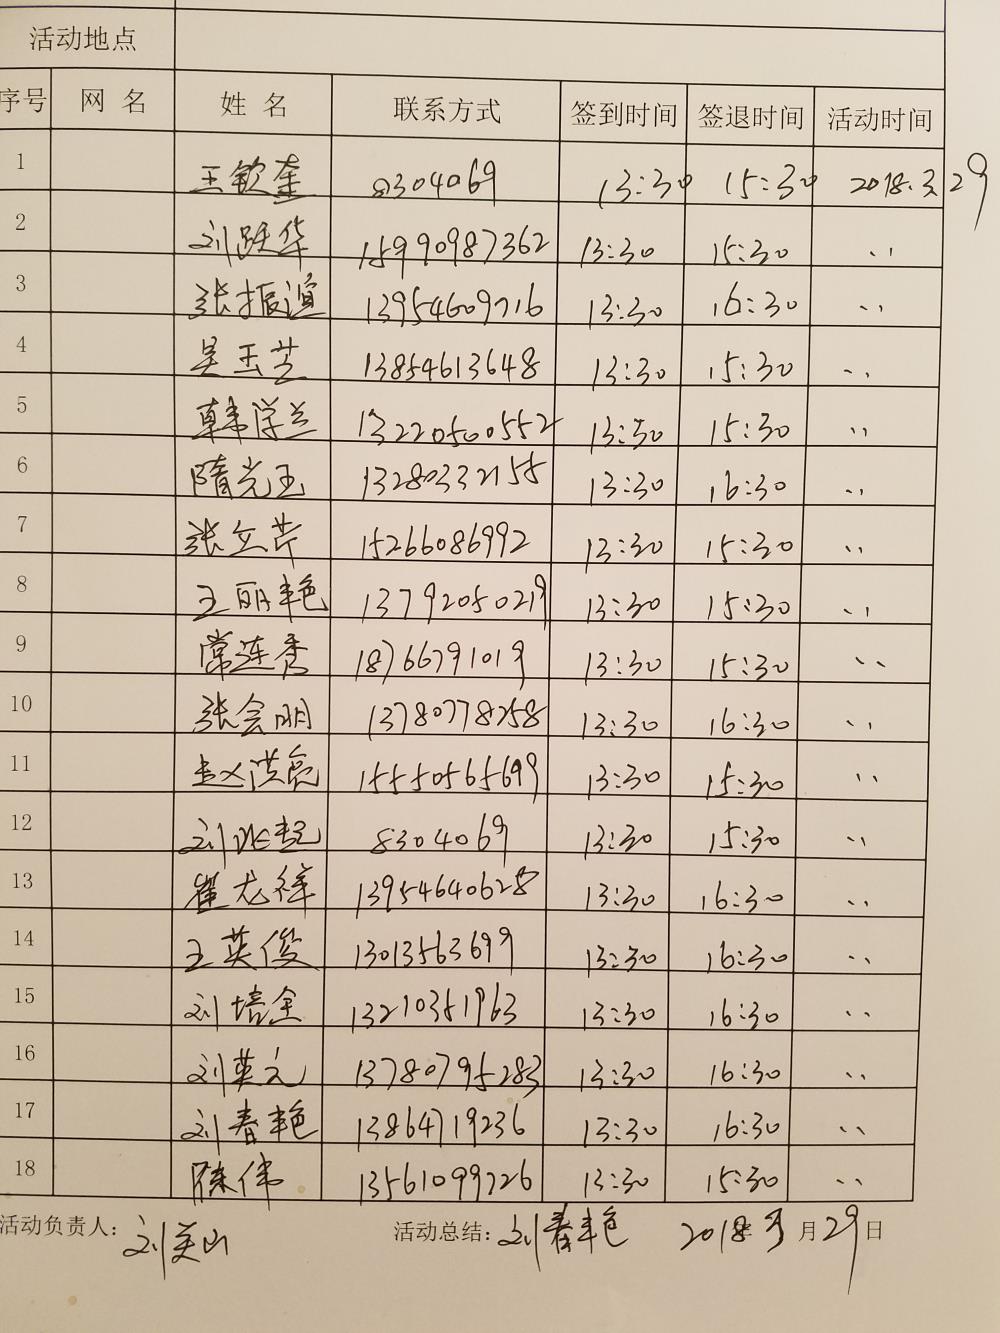 活动地点
序号 网名 姓名 联系方式 签到时间 签退时间 活动时间
1 王钦奎 8304069 13:30 15:30 2018.3.29
2 刘跃华 15990987362 13:30 15:30 〃
3 张振谊 13954609716 13:30 16:30 〃
4 吴玉芝 13854613648 13:30 15:30 〃
5 韩学兰 13220500552 13:30 15:30 〃
6 隋光玉 13280332155 13:30 16:30 〃
7 张立芹 15266086992 13:30 15:30 〃
8 王丽艳 13792050219 13:30 15:30 〃
9 常连秀 18766791019 13:30 15:30 〃
10 张会明 13780778258 13:30 16:30 〃
11 赵洪亮 15550565699 13:30 15:30 〃
12 刘 8304069 13:30 15:30 〃
13 崔 13954640628 13:30 16:30 〃
14 王英俊 13013563699 13:30 16:30 〃
15 刘培全 13210351963 13:30 16:30 〃
16 刘英元 13780795283 13:30 16:30 〃
17 刘春艳 13864719236 13:30 16:30 〃
18 陈伟 13561099726 13:30 15:30 〃
活动负责人: 刘英山 活动总结: 刘春艳 2018年3月29日